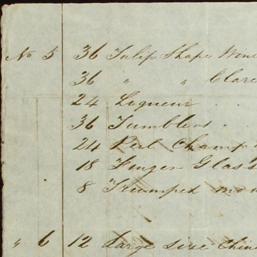 No 5 36 Tulip Shape Wine
36 " " Clare
24 Liqueur . .
36 Tumblers .
24 Champ
18 Finger Glass
8
" 6 12 Large size